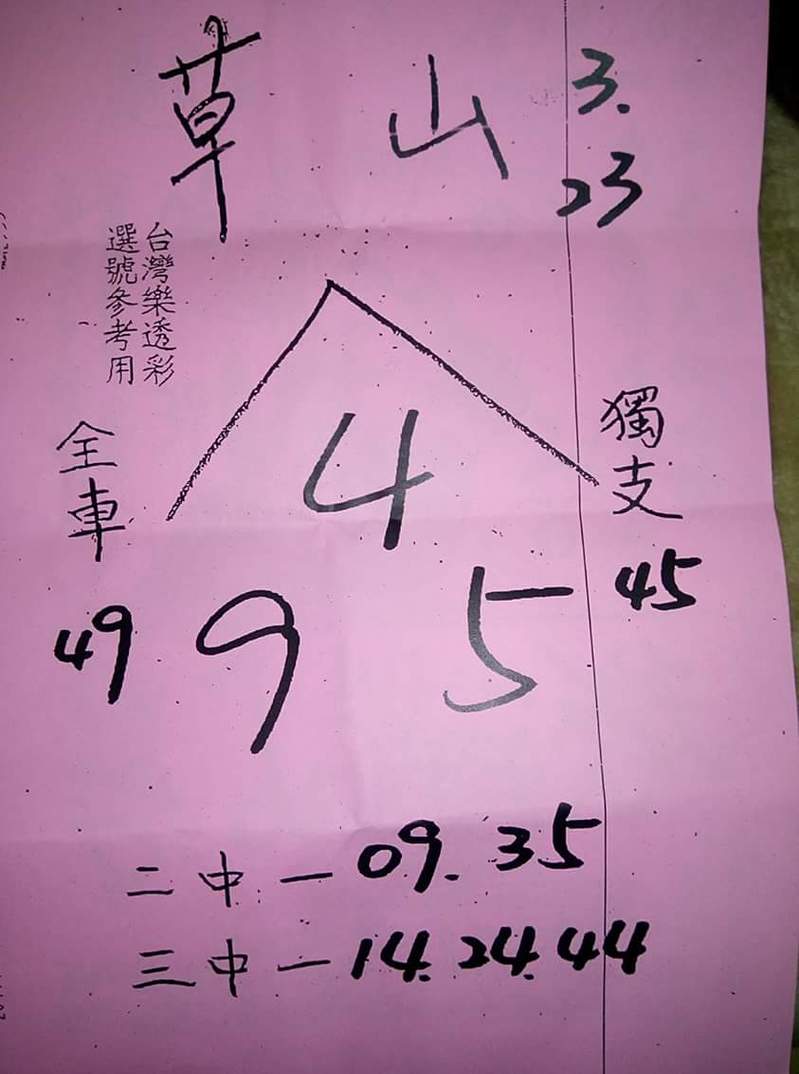 草山
3.
23
台灣樂透彩
選號參考用
全車
49
獨支
45
4
9 5
二中一 09. 35
三中一 14. 24. 44